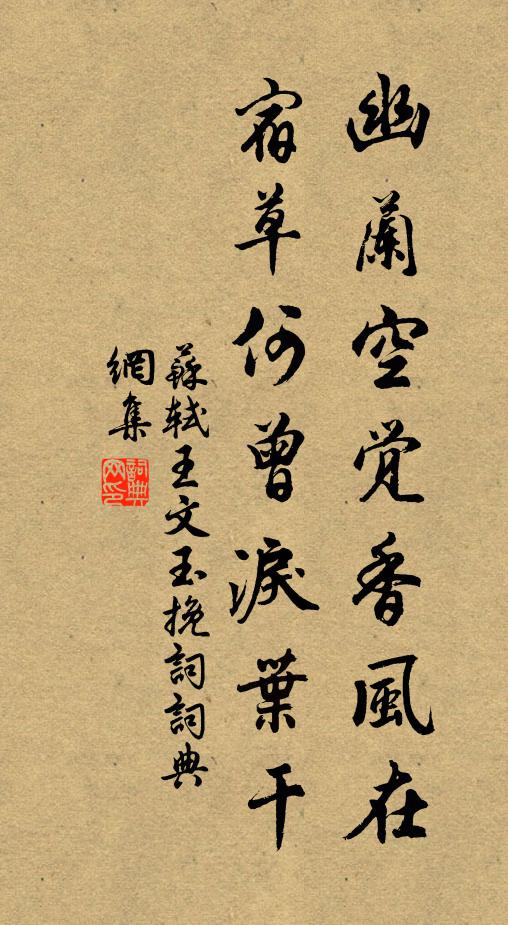 幽蘭空覺香風在
宿草何曾淚葉干
蘇軾王文玉挽詞詞典
網集
詞典
网印